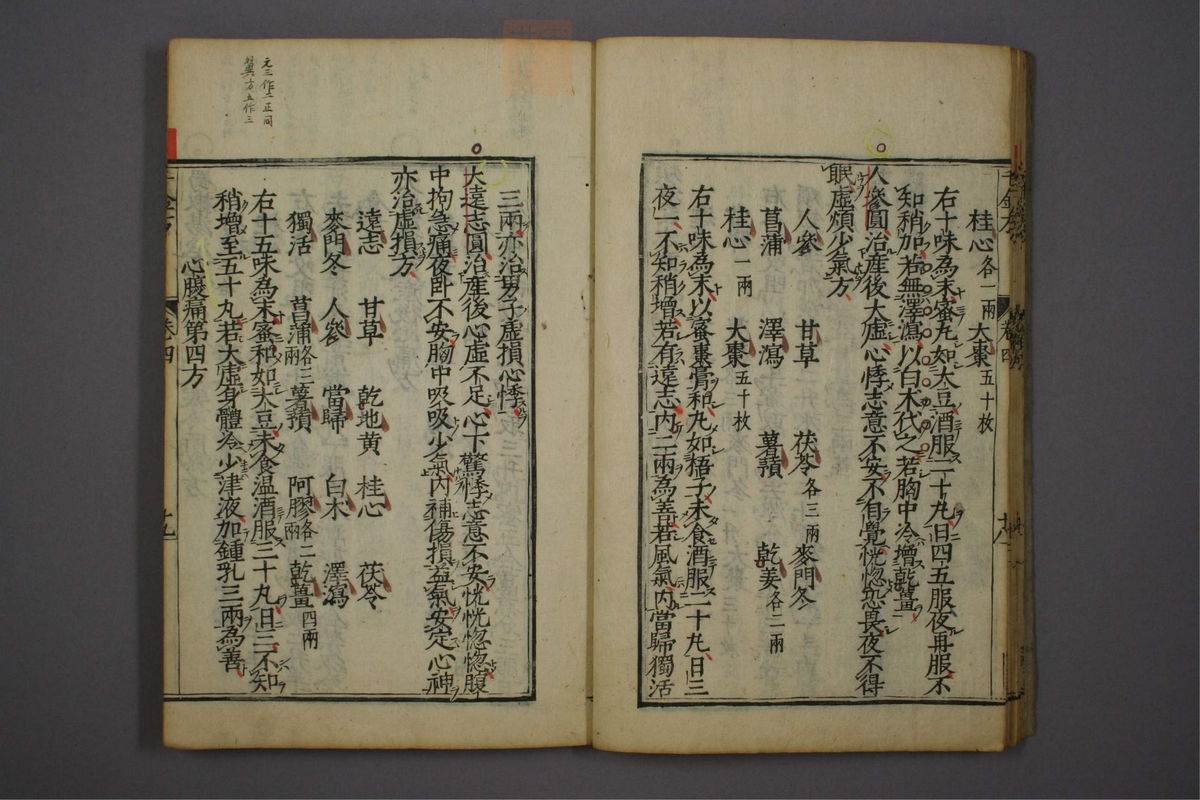 桂心各一兩 大棗五十枚
右十味為末蜜丸如大豆酒服二十丸日四五服夜再服不
知稍加若無澤瀉以白术代之若胸中冷增乾薑
人參圓治産後大虛心悸志意不安不自覺恍惚恐畏夜不得
眠虛煩少氣方
人參 甘草 茯苓各三兩 麥門冬
菖蒲 澤瀉 薯蕷 乾姜各二兩
桂心一兩 大棗五十枚
右十味為末以蜜棗膏和丸如梧子未食酒服二十丸日三
夜一不知稍增若有遠志内二兩為善若風氣内當歸獨活
三兩亦治男子虛損心悸
大遠志圓治産後心虛不足心下驚悸志意不安恍恍惚惚腹
中拘急痛夜卧不安胸中吸吸少氣内補傷損益氣安定心神
亦治虛損方
遠志 甘草 乾地黄 桂心 茯苓
麥門冬 人參 當歸 白术 澤瀉
獨活 菖蒲各三兩 薯蕷 阿膠各二兩 乾薑四兩
右十五味為末蜜和如大豆未食温酒服二十丸日三不知
稍增至五十丸若大虛身體冷少津液加鍾乳三兩為善
心腹痛第四方
卷四
十九
元三作二正同
翼方五作三